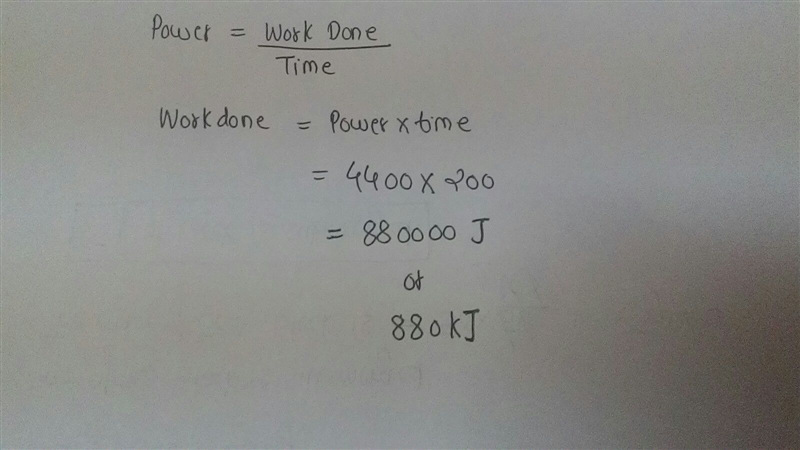 Power = Work Done
Time
Workdone = Power x time
= 4400 x 200
= 880000 J
or
880 kJ